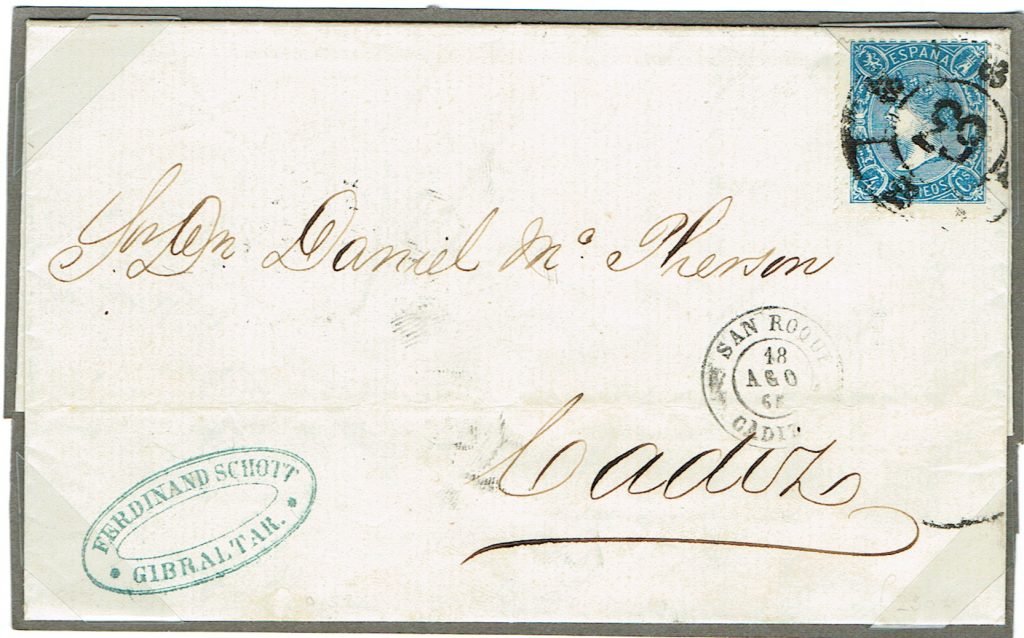 ESPAÑA
4 CUDEOS Cs
53
Sor Dn. Daniel Mc. Pherson
SAN ROQUE
18
AGO
65
CADIZ
Cadiz
FERDINAND SCHOTT
GIBRALTAR.